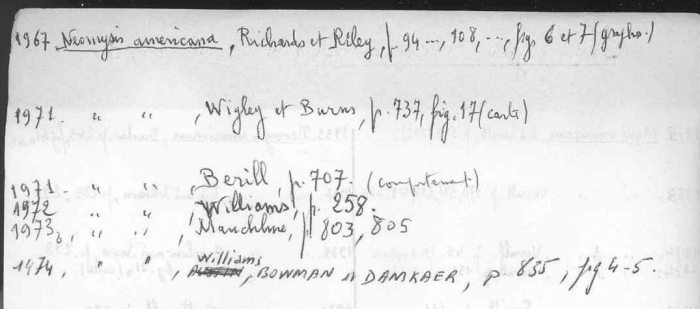 1967 Neomysis americana, Richards et Riley, p. 94 ..., 108, ..., fig. 6 et 7 (grapho.)
1971. " " , Wigley et Burns, p. 737, fig. 17 (carte)
1971. " " , Berill, p. 707. (comportement)
1972 , " " , Williams, p. 258.
1973b, " " , Mauchline, p. 803, 805
1974, " " , Williams, BOWMAN et DAMKAER, p 835, fig 4-5.